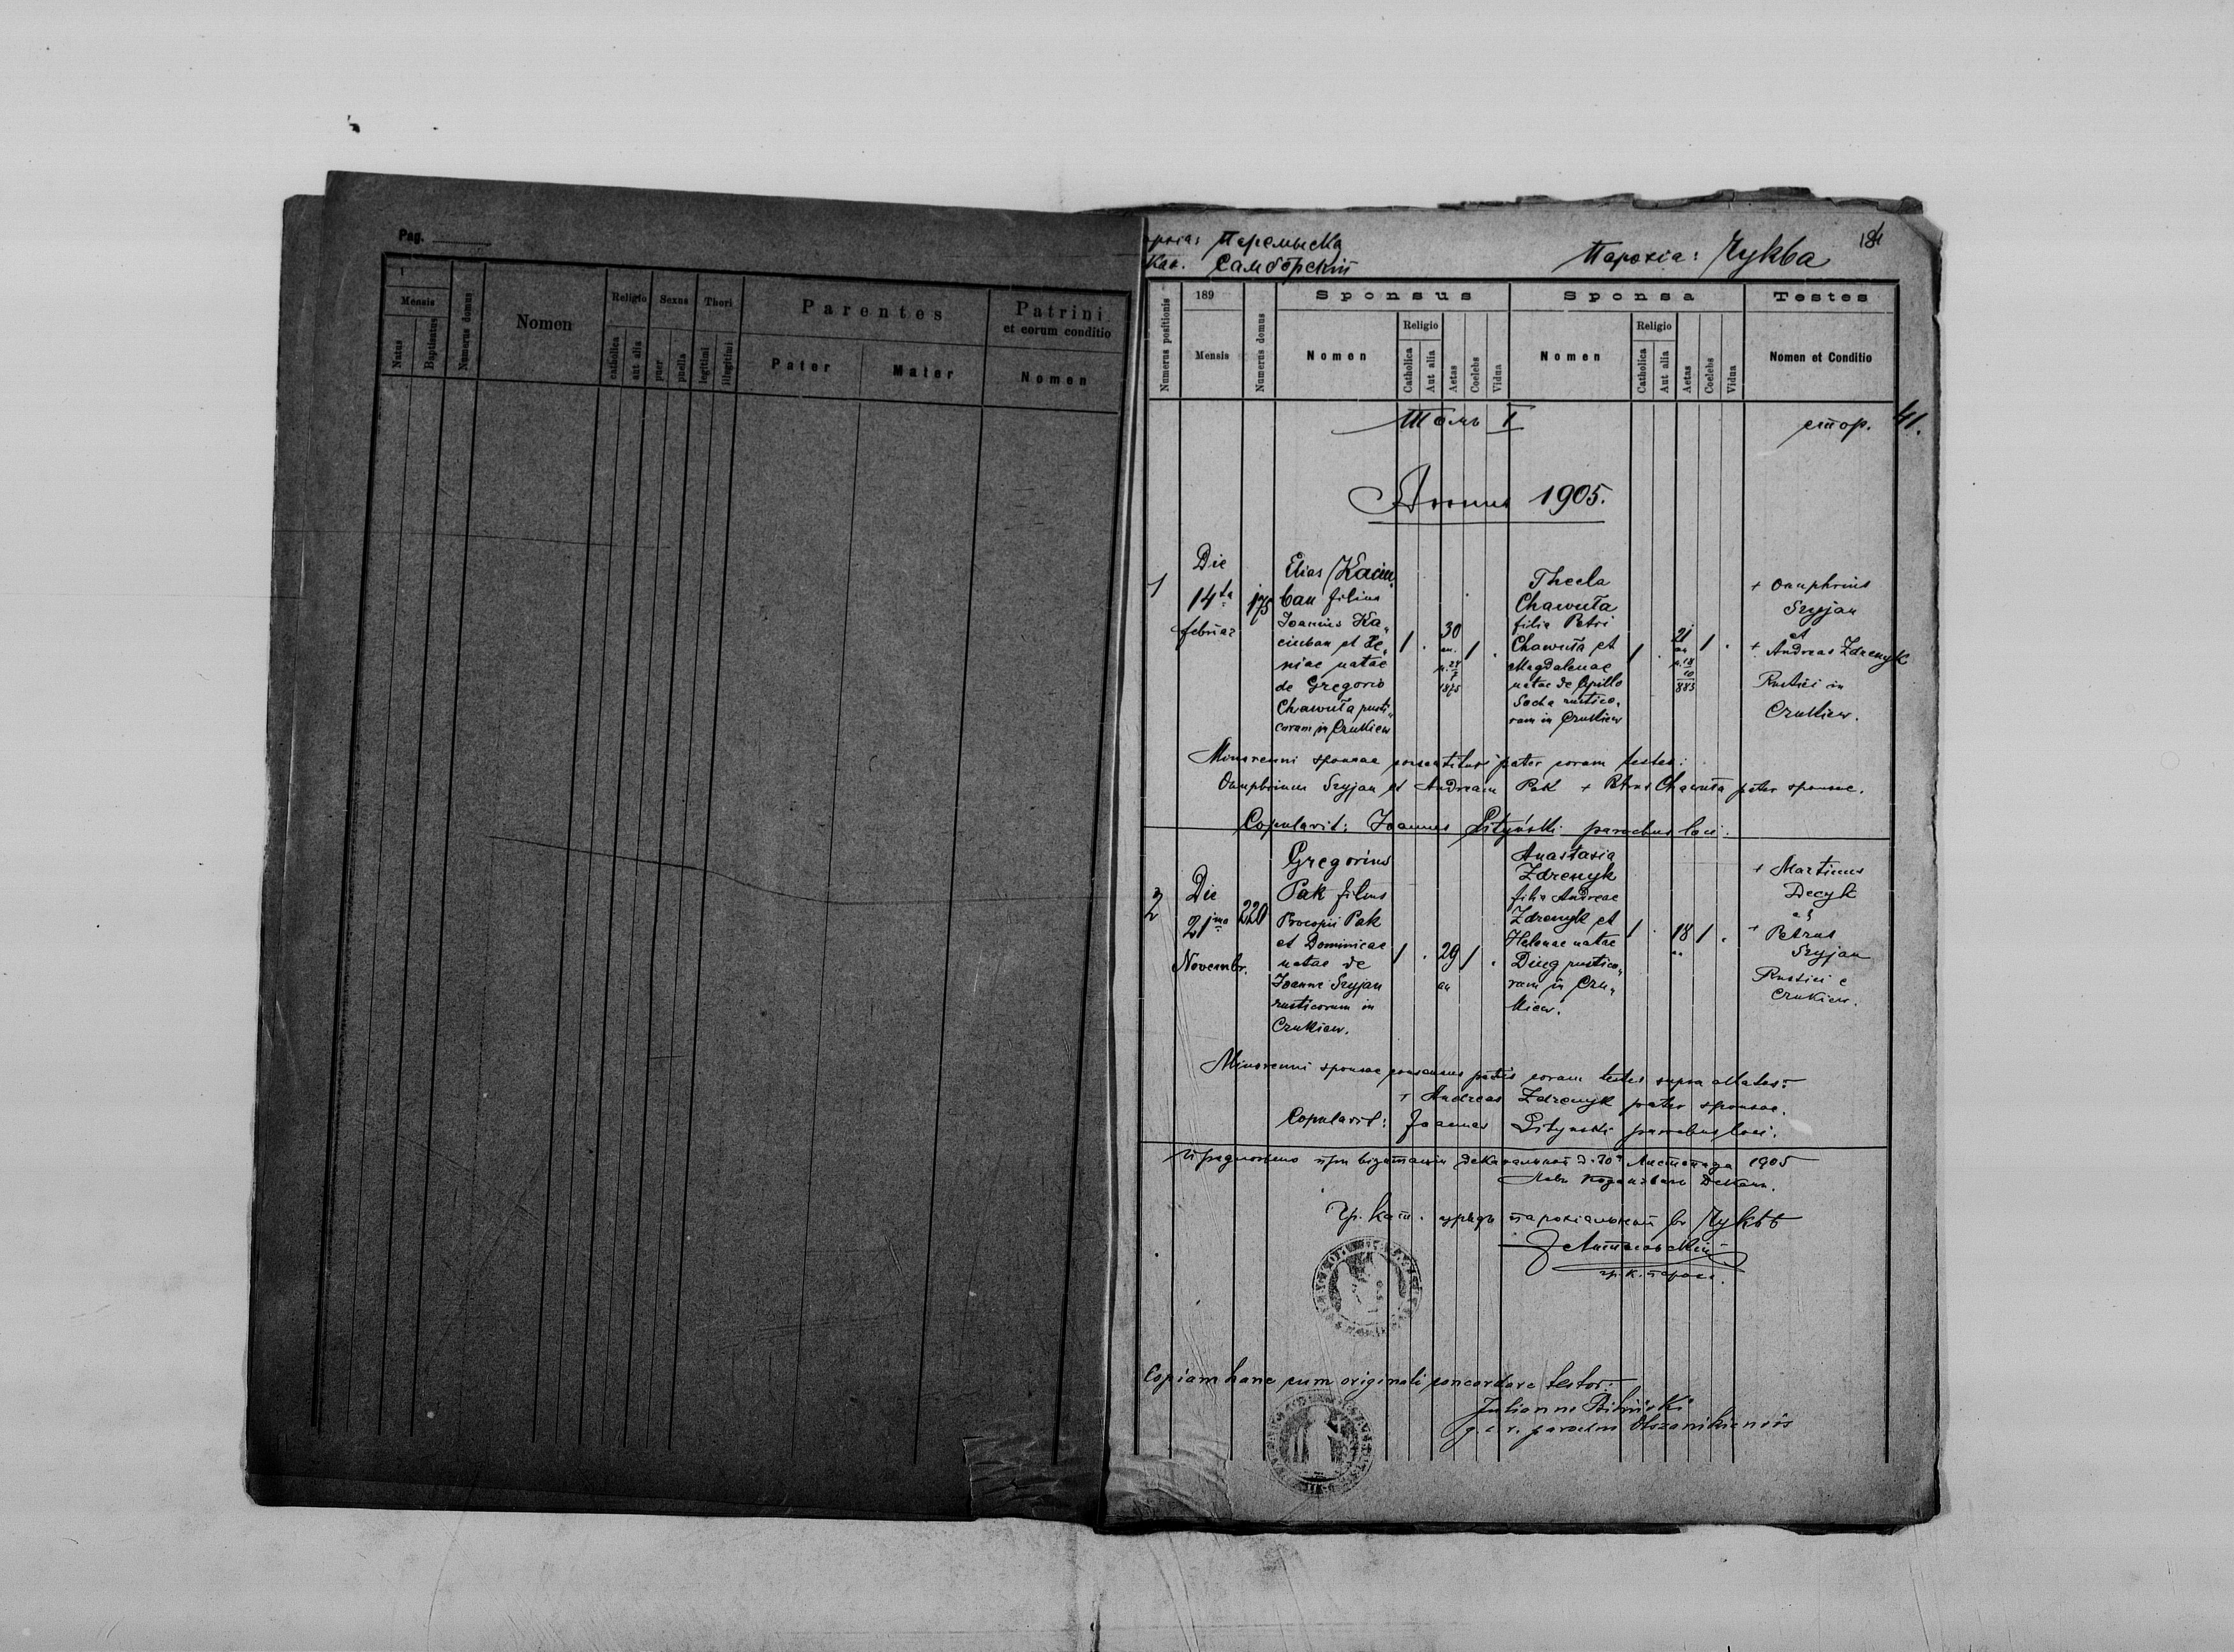 Pag.
1
Mensis
Natus
Baptisatus
Numerus domus
Nomen
Religio
catholica
aut alia
Sexus
puer
puella
Thori
legitimi
illegitimi
Parentes
Pater
Mater
Patrini
et eorum conditio
Nomen
Перемыска
Самборскій
Парохіа: Чуква
Numerus positionis
189
Mensis
Numerus domus
Sponsus
Nomen
Religio
Catholica
Aut alia
Aetas
Coelebs
Vidua
Sponsa
Nomen
Religio
Catholica
Aut alia
Aetas
Coelebs
Vidua
Testes
Nomen et Conditio
Томъ I
стор. 41.
Annus 1905.
1
Die
14ta
175
Elias Kaciu„
ban filius
Joannis Ka„
ciuban et
niae natae
de Gregorio
Chawuła rusti„
corum in Czukiew
1 . 30 an. 1 .
1875
Thecla
Chawuła
filia Petri
Chawuła et
Magdalenae
natae de Cyrillo
Socha rustico„
rum in Czukiew
1 . 21 an 1 .
18
10
883
+ Onuphrius
Szyjan
et
+ Andreas Zdrenyk
Rustici in
Czukiew.
Minorenni sponsae pater coram testes:
Onuphrium Szyjan et Andream Pak + Petrus Chawuła pater sponsae.
Copulavit: Joannes Lityński parochus loci.
2
Die
21ma
Novembr.
220
Gregorius
Pak filius
Procopii Pak
et Dominicae
natae de
Joanne Szyjan
rusticorum in
Czukiew.
1 . 29 an 1 .
Anastasia
Zdrenyk
filia Andreae
Zdrenyk et
Helenae natae
rustico„
rum in Czu„
kiew.
1 . 18 1 .
+ Martinus
Decyk
et
+ Petrus
Szyjan
Rustici e
Czukiew.
Minorenni sponsae consensus patris coram testes supra
+ Andreas Zdrenyk pater sponsae.
Copulavit: Joannes Lityński parochus loci.
при візитаціи деканальной д. 30 Листопада 1905
Декан.
Гр. кат. урядъ парохіальный въ Чуквѣ
гр. к. парох.
Copiam hanc cum originali concordare testor.
Julianus
g. c. r. parochus Olszanikiensis